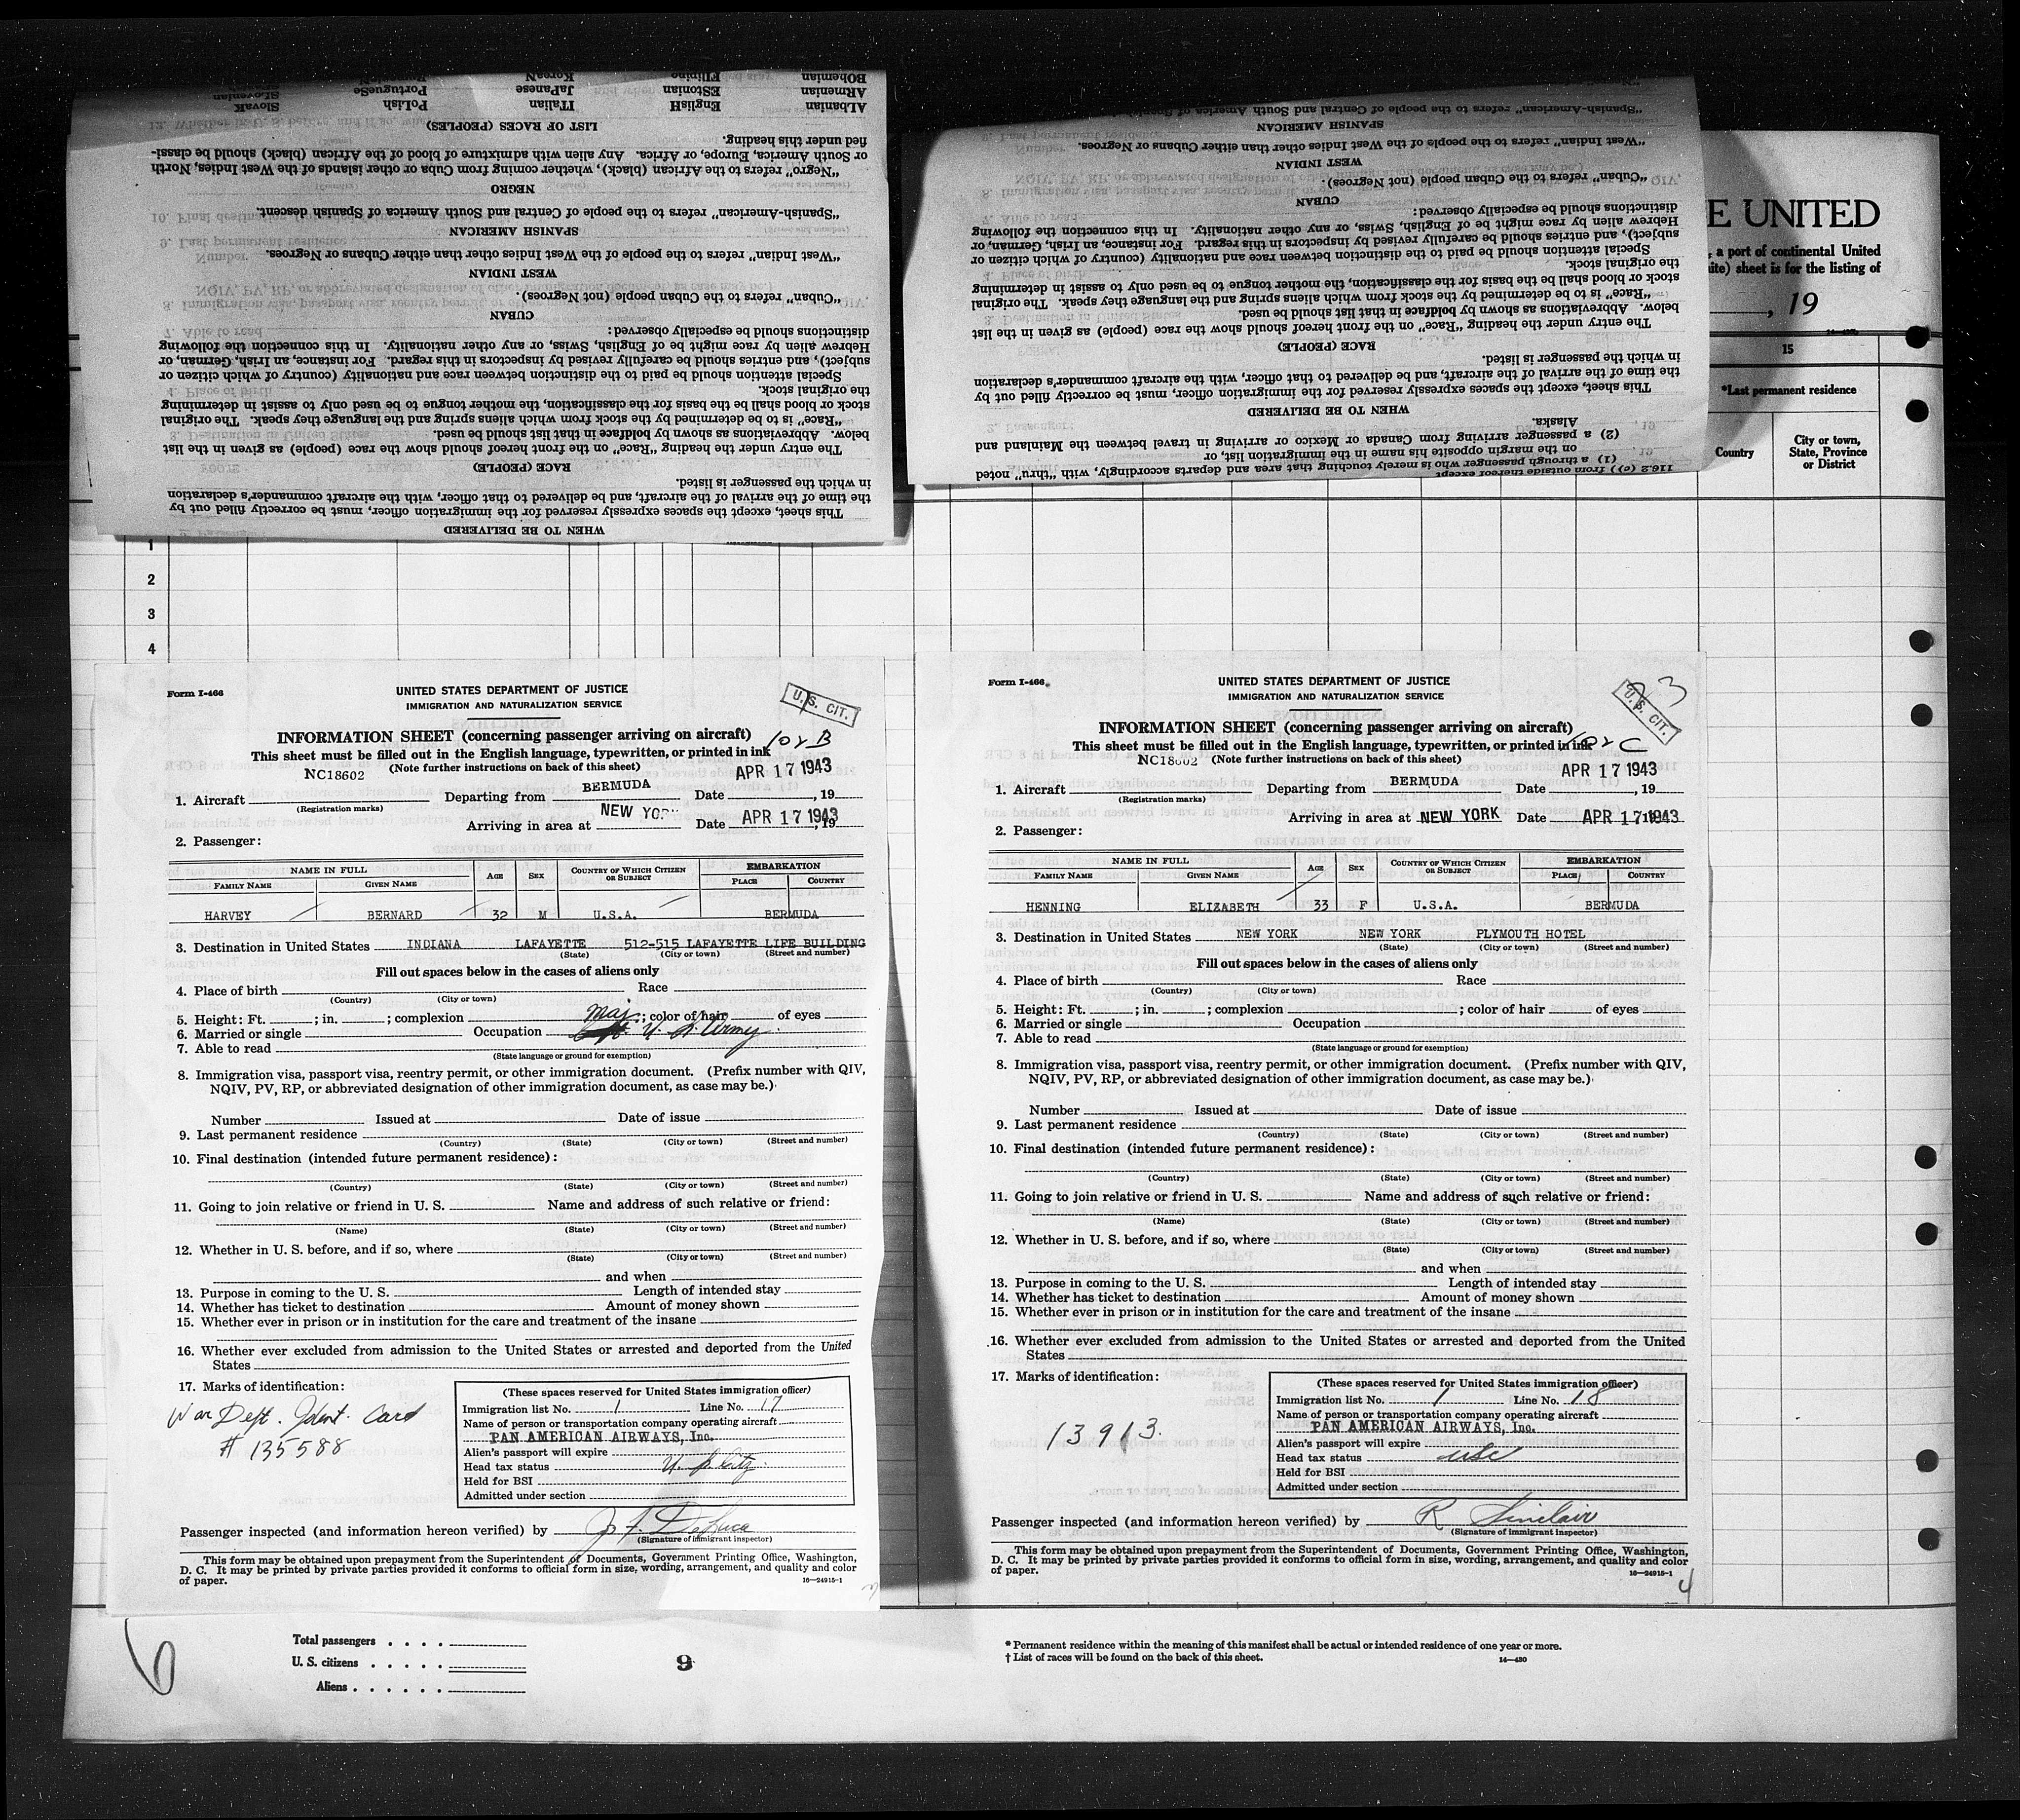 BOhemian FIlipino KoreaN
ARmenian EStonian JaPanese PortugueSe SLovenian
ALbanian EnglisH ITalian PoLish SlovaK
LIST OF RACES (PEOPLES)
fied under this heading.
or South America, Europe, or Africa. Any alien with admixture of blood of the African (black) should be classi-
“Negro” refers to the African (black), whether coming from Cuba or other islands of the West Indies, North
NEGRO
“Spanish-American” refers to the people of Central and South America of Spanish descent.
SPANISH AMERICAN
“West Indian” refers to the people of the West Indies other than either Cubans or Negroes.
WEST INDIAN
“Cuban” refers to the Cuban people (not Negroes).
CUBAN
distinctions should be especially observed:
Hebrew alien by race might be of English, Swiss, or any other nationality. In this connection the following
subject), and entries should be carefully revised by inspectors in this regard. For instance, an Irish, German, or
Special attention should be paid to the distinction between race and nationality (country of which citizen or
the original stock.
stock or blood shall be the basis for the classification, the mother tongue to be used only to assist in determining
“Race” is to be determined by the stock from which aliens spring and the language they speak. The original
below. Abbreviations as shown by boldface in that list should be used.
The entry under the heading “Race” on the front hereof should show the race (people) as given in the list
RACE (PEOPLE)
in which the passenger is listed.
the time of the arrival of the aircraft, and be delivered to that officer, with the aircraft commander’s declaration
This sheet, except the spaces expressly reserved for the immigration officer, must be correctly filled out by
WHEN TO BE DELIVERED
“Spanish-American” refers to the people of Central and South America of
SPANISH AMERICAN
“West Indian” refers to the people of the West Indies other than either Cubans or Negroes.
WEST INDIAN
“Cuban” refers to the Cuban people (not Negroes).
CUBAN
distinctions should be especially observed:
Hebrew alien by race might be of English, Swiss, or any other nationality. In this connection the following
subject), and entries should be carefully revised by inspectors in this regard. For instance, an Irish, German, or
Special attention should be paid to the distinction between race and nationality (country of which citizen or
the original stock.
stock or blood shall be the basis for the classification, the mother tongue to be used only to assist in determining
“Race” is to be determined by the stock from which aliens spring and the language they speak. The original
below. Abbreviations as shown by boldface in that list should be used.
The entry under the heading “Race” on the front hereof should show the race (people) as given in the list
RACE (PEOPLE)
in which the passenger is listed.
the time of the arrival of the aircraft, and be delivered to that officer, with the aircraft commander’s declaration
This sheet, except the spaces expressly reserved for the immigration officer, must be correctly filled out by
WHEN TO BE DELIVERED
Alaska.
(2) a passenger arriving from Canada or Mexico or arriving in travel between the Mainland and
on the margin opposite his name in the immigration list, or
(1) a through passenger who is merely touching that area and departs accordingly, with “thru” noted
116.2 (c)) from outside thereof except
E UNITED
, a port of continental United
ite) sheet is for the listing of
, 19
15
*Last permanent residence
Country
City or town,
State, Province
or District
1
2
3
4
Form I-466
UNITED STATES DEPARTMENT OF JUSTICE
IMMIGRATION AND NATURALIZATION SERVICE
U.S. CIT.
INFORMATION SHEET (concerning passenger arriving on aircraft)
102 B
This sheet must be filled out in the English language, typewritten, or printed in ink
NC18602 (Note further instructions on back of this sheet) APR 17 1943
1. Aircraft Departing from BERMUDA Date , 19
(Registration marks)
Arriving in area at NEW YOR Date APR 17 1943 , 19
2. Passenger:
NAME IN FULL AGE SEX COUNTRY OF WHICH CITIZEN OR SUBJECT EMBARKATION
FAMILY NAME GIVEN NAME PLACE COUNTRY
HARVEY BERNARD 32 M U.S.A. BERMUDA
3. Destination in United States INDIANA LAFAYETTE 512-515 LAFAYETTE LIFE BUILDING
(State) (City or town) (Street and number)
Fill out spaces below in the cases of aliens only
4. Place of birth Race
(Country) (City or town)
5. Height: Ft. ; in. ; complexion Maj. ; color of hair of eyes
6. Married or single Occupation U. S. Army
7. Able to read
(State language or ground for exemption)
8. Immigration visa, passport visa, reentry permit, or other immigration document. (Prefix number with QIV,
NQIV, PV, RP, or abbreviated designation of other immigration document, as case may be.)
Number Issued at Date of issue
9. Last permanent residence
(Country) (State) (City or town) (Street and number)
10. Final destination (intended future permanent residence):
(Country) (State) (City or town) (Street and number)
11. Going to join relative or friend in U. S. Name and address of such relative or friend:
(Name) (State) (City or town) (Street and number)
12. Whether in U. S. before, and if so, where
(State) (City or town) (Street and number)
and when
13. Purpose in coming to the U. S. Length of intended stay
14. Whether has ticket to destination Amount of money shown
15. Whether ever in prison or in institution for the care and treatment of the insane
16. Whether ever excluded from admission to the United States or arrested and deported from the United
States
17. Marks of identification:
War Dept. Ident. Card
# 135588
(These spaces reserved for United States immigration officer)
Immigration list No. 1 Line No. 17
Name of person or transportation company operating aircraft
PAN AMERICAN AIRWAYS, Inc.
Alien’s passport will expire
Head tax status U. S. Citz.
Held for BSI
Admitted under section
Passenger inspected (and information hereon verified) by
(Signature of immigrant inspector)
This form may be obtained upon prepayment from the Superintendent of Documents, Government Printing Office, Washington,
D. C. It may be printed by private parties provided it conforms to official form in size, wording, arrangement, and quality and color
of paper.
16—24915-1
Form I-466
UNITED STATES DEPARTMENT OF JUSTICE
IMMIGRATION AND NATURALIZATION SERVICE
U.S. CIT.
INFORMATION SHEET (concerning passenger arriving on aircraft)
102 C
This sheet must be filled out in the English language, typewritten, or printed in ink
NC18602 (Note further instructions on back of this sheet) APR 17 1943
1. Aircraft Departing from BERMUDA Date , 19
(Registration marks)
Arriving in area at NEW YORK Date APR 17 1943
2. Passenger:
NAME IN FULL AGE SEX COUNTRY OF WHICH CITIZEN OR SUBJECT EMBARKATION
FAMILY NAME GIVEN NAME PLACE COUNTRY
HENNING ELIZABETH 33 F U.S.A. BERMUDA
3. Destination in United States NEW YORK NEW YORK PLYMOUTH HOTEL
(State) (City or town) (Street and number)
Fill out spaces below in the cases of aliens only
4. Place of birth Race
(Country) (City or town)
5. Height: Ft. ; in. ; complexion ; color of hair of eyes
6. Married or single Occupation
7. Able to read
(State language or ground for exemption)
8. Immigration visa, passport visa, reentry permit, or other immigration document. (Prefix number with QIV,
NQIV, PV, RP, or abbreviated designation of other immigration document, as case may be.)
Number Issued at Date of issue
9. Last permanent residence
(Country) (State) (City or town) (Street and number)
10. Final destination (intended future permanent residence):
(Country) (State) (City or town) (Street and number)
11. Going to join relative or friend in U. S. Name and address of such relative or friend:
(Name) (State) (City or town) (Street and number)
12. Whether in U. S. before, and if so, where
(State) (City or town) (Street and number)
and when
13. Purpose in coming to the U. S. Length of intended stay
14. Whether has ticket to destination Amount of money shown
15. Whether ever in prison or in institution for the care and treatment of the insane
16. Whether ever excluded from admission to the United States or arrested and deported from the United
States
17. Marks of identification:
13913.
(These spaces reserved for United States immigration officer)
Immigration list No. 1 Line No. 18
Name of person or transportation company operating aircraft
PAN AMERICAN AIRWAYS, Inc.
Alien’s passport will expire
Head tax status USC
Held for BSI
Admitted under section
Passenger inspected (and information hereon verified) by R Sinclair
(Signature of immigrant inspector)
This form may be obtained upon prepayment from the Superintendent of Documents, Government Printing Office, Washington,
D. C. It may be printed by private parties provided it conforms to official form in size, wording, arrangement, and quality and color
of paper.
16—24915-1
4
6
Total passengers . . . .
U. S. citizens . . . . .
Aliens . . . . . .
9
* Permanent residence within the meaning of this manifest shall be actual or intended residence of one year or more.
† List of races will be found on the back of this sheet.
14—430